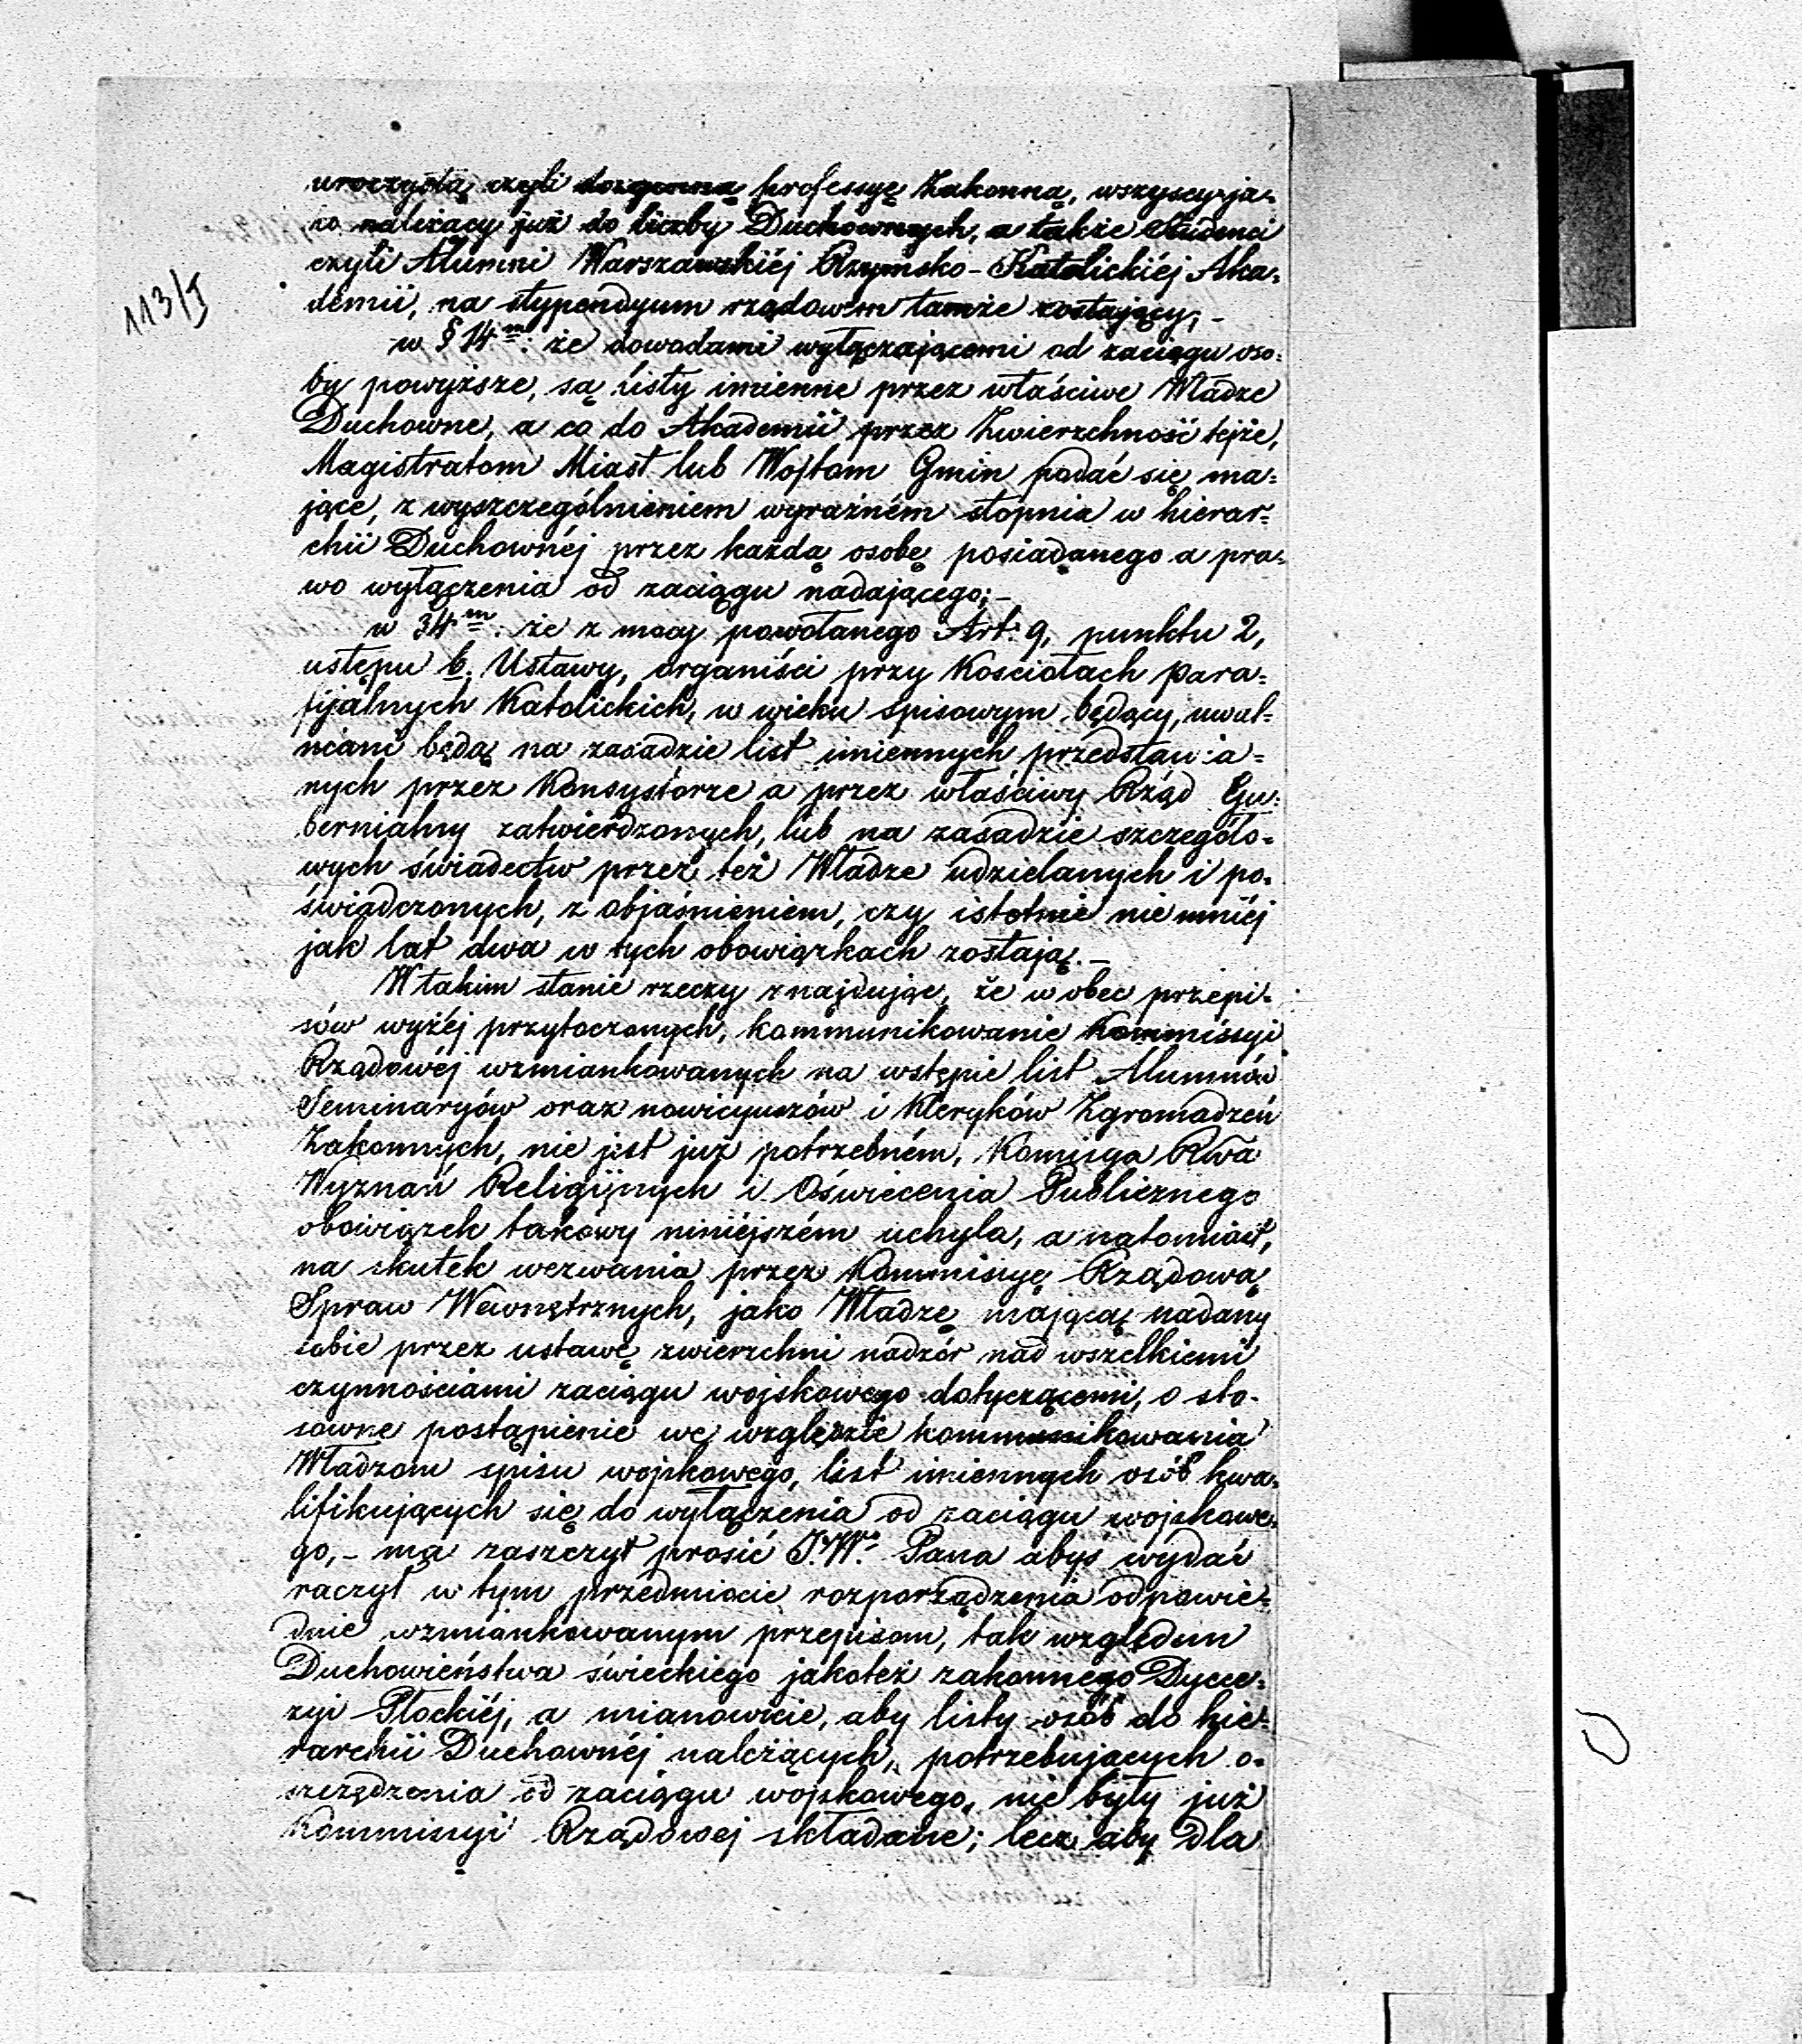 113/I
uroczystą czyli dozgonną professyę Zakonną, wszyscy ja-
ko należący już do liczby Duchownych, a także Studenci
czyli Alumni Warszawskiéj Rzymsko-Katolickiéj Aka-
demii, na stypendyum rządowem tamże zostający; -
w § 14m: że dowodami wyłączającemi od zaciągu oso-
by powyższe, są listy imienne przez właściwe Władze
Duchowne, a co do Akademii przez Zwierzchność tejże,
Magistratom Miast lub Wojtom Gmin podać się ma-
jące, z wyszczególnieniem wyraźném stopnia w hierar-
chii Duchownéj przez każdą osobę posiadanego a pra-
wo wyłączenia od zaciągu nadającego; -
w 34m: że z mocy powołanego Art: 9, punktu 2,
ustępu b. Ustawy, organiści przy Kościołach para-
fijalnych Katolickich, w wieku spisowym będący, uwal-
niani będą na zasadzie list imiennych przedstawia-
nych przez Konsystorze a przez właściwy Rząd Gu-
bernialny zatwierdzonych, lub na zasadzie szczegóło-
wych świadectw przez też Władze udzielanych i po-
świadczonych, z objaśnieniem, czy istotnie nie mniéj
jak lat dwa w tych obowiązkach zostają. -
W takim stanie rzeczy znajdując, że w obec przepi-
sów wyżéj przytoczonych, kommunikowanie Kommissyi
Rządowéj wzmiankowanych na wstępie list Alumnów
Seminaryów oraz nowicyuszów i Kleryków Zgromadzeń
Zakonnych, nie jest już potrzebném, Komisya Rwa
Wyznań Religijnych i Oświecenia Publicznego
obowiązek takowy niniéjszém uchyla, a natomiast,
na skutek wezwania przez Kommisyę Rządową
Spraw Wewnętrznych, jako Władzę mającą nadany
sobie przez ustawę zwierzchni nadzór nad wszelkiemi
czynnościami zaciągu wojskowego dotyczącemi, o sto-
sowne postąpienie we względzie kommunikowania
Władzom spisu wojskowego, list imiennych osób kwa-
lifikujących się do wyłączenia od zaciągu wojskowe-
go, - ma zaszczyt prosić J.W. Pana abyś wydać
raczył w tym przedmiocie rozporządzenia odpowie-
dnie wzmiankowanym przepisom, tak względem
Duchowieństwa świeckiego jakoteż zakonnego Dyece-
zyi Płockiéj, a mianowicie, aby listy osób do hie-
rarchii Duchownéj należących, potrzebujących o-
szczędzenia od zaciągu wojskowego, nie były już
Kommissyi Rządowej składane; lecz aby dla